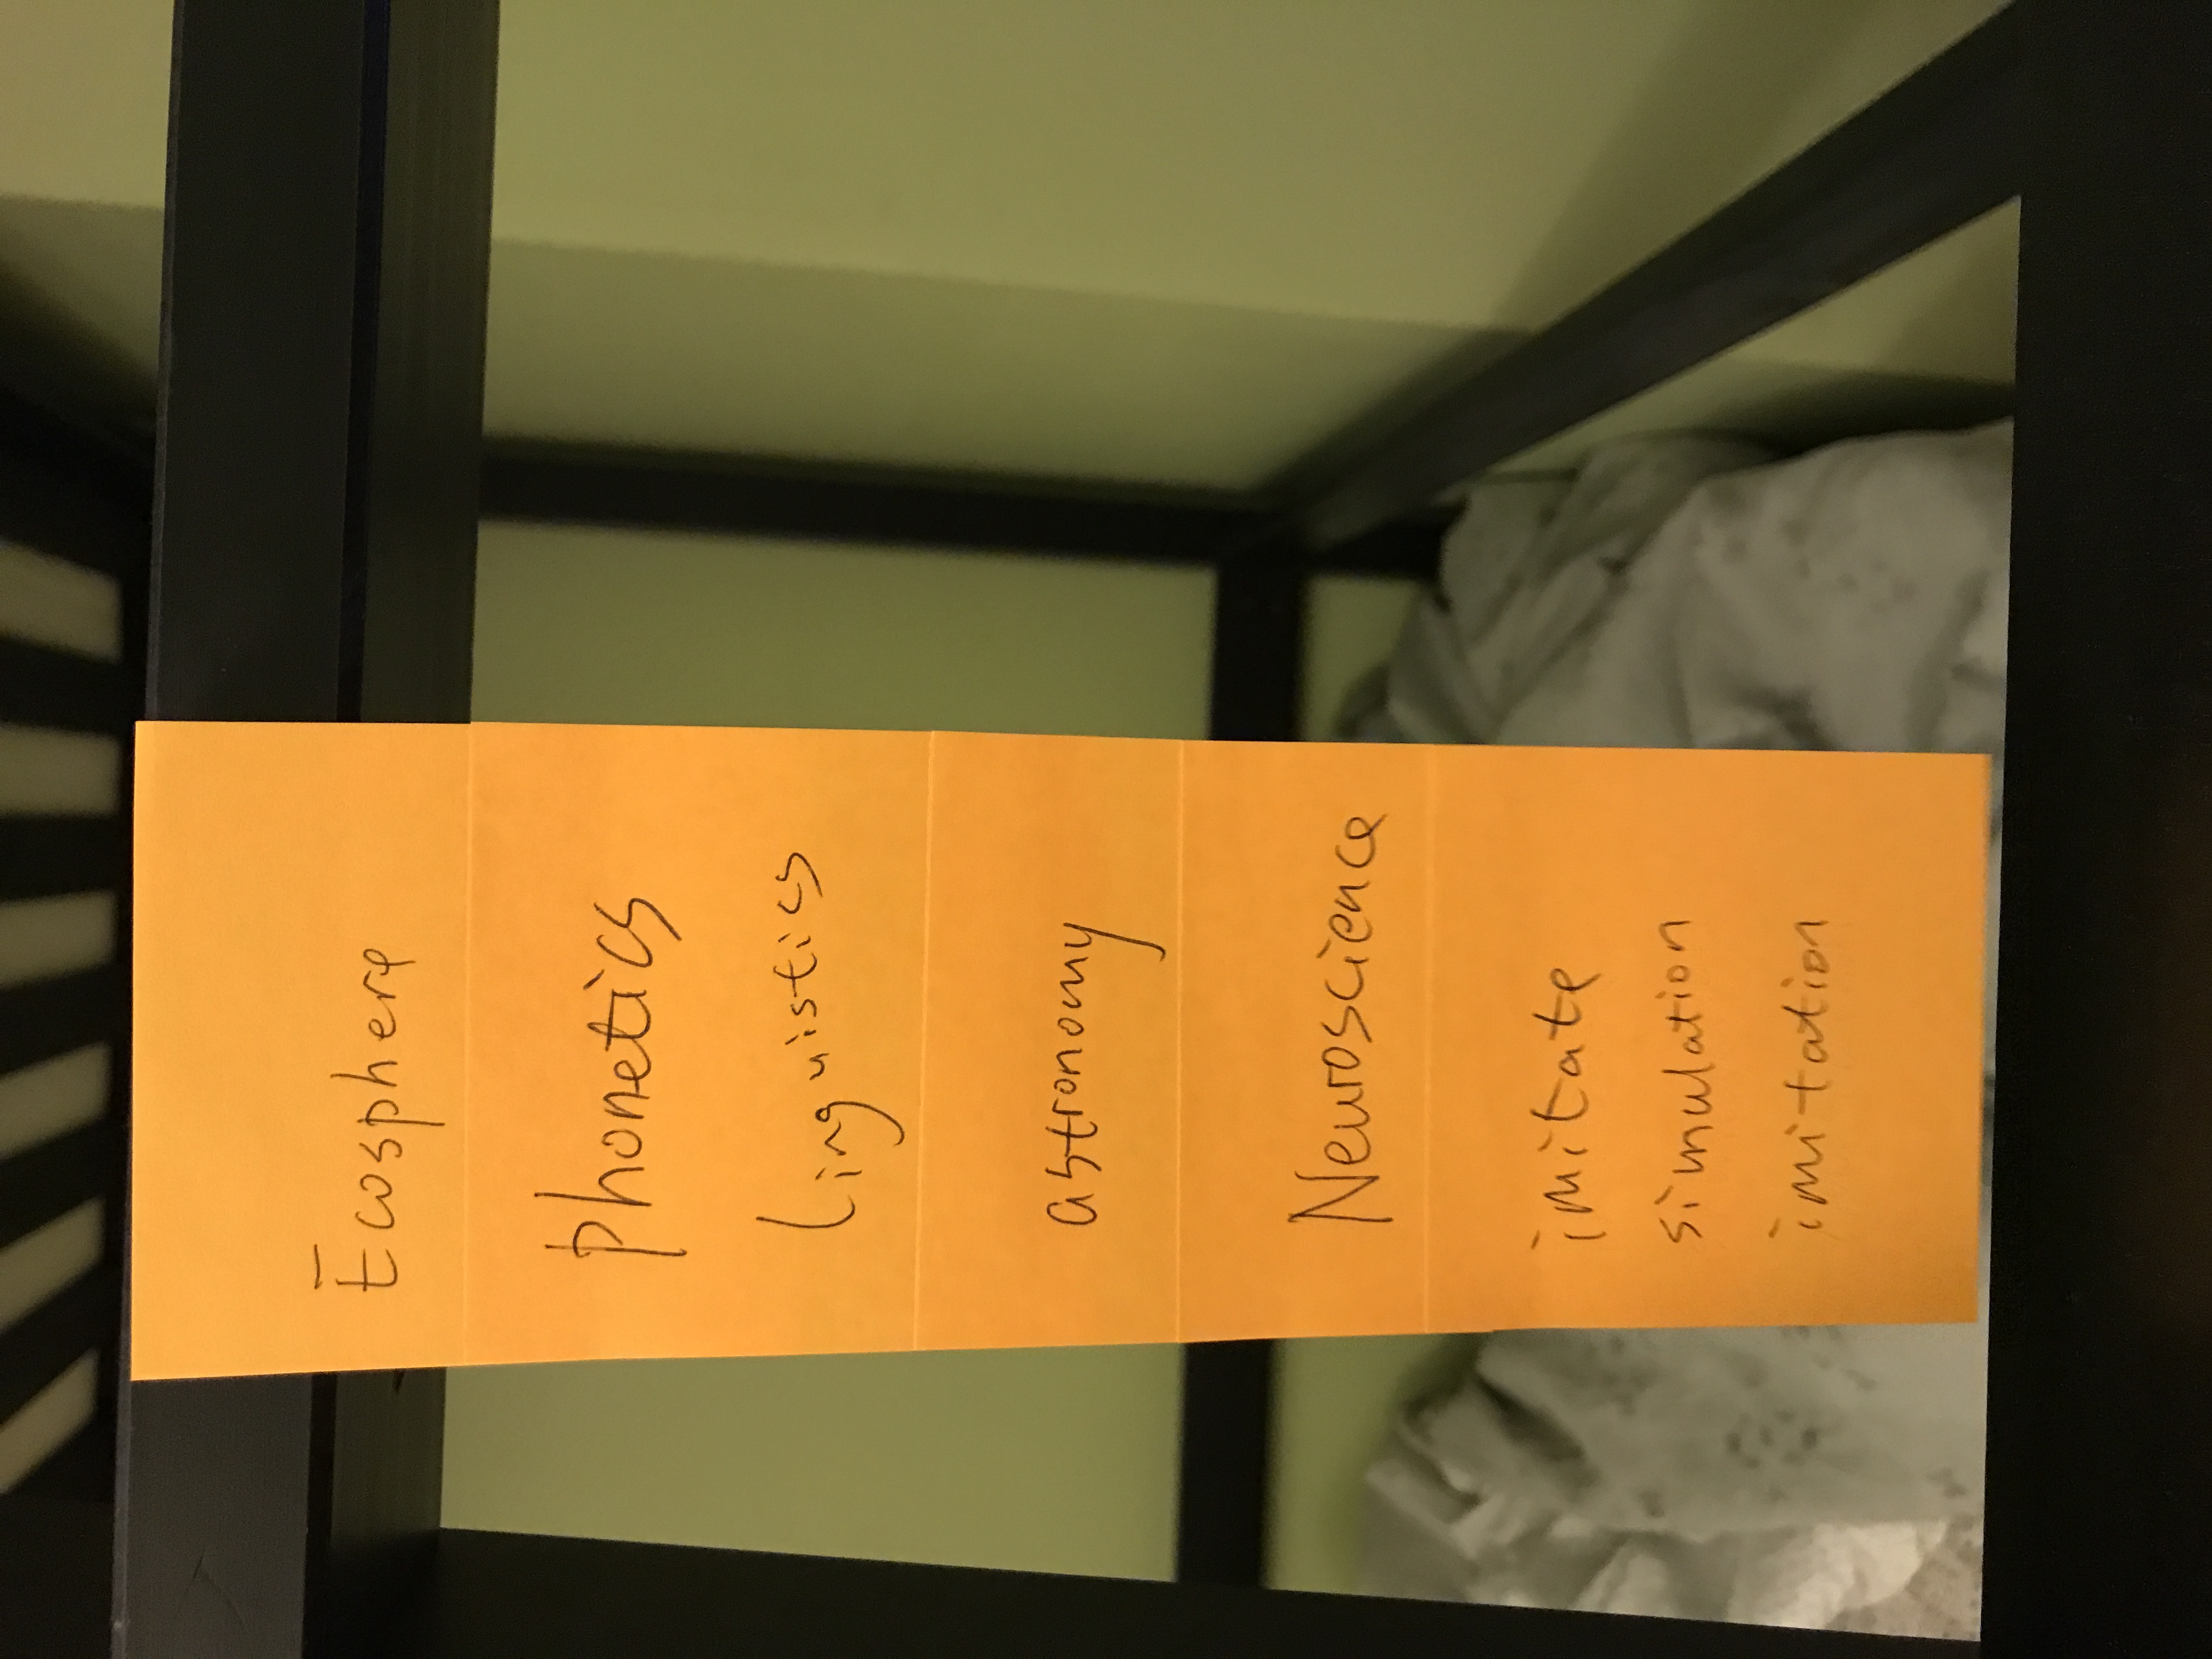 Ecosphere
Phonetics
Linguistics
astronomy
Neuroscience
imitate
simulation
imitation